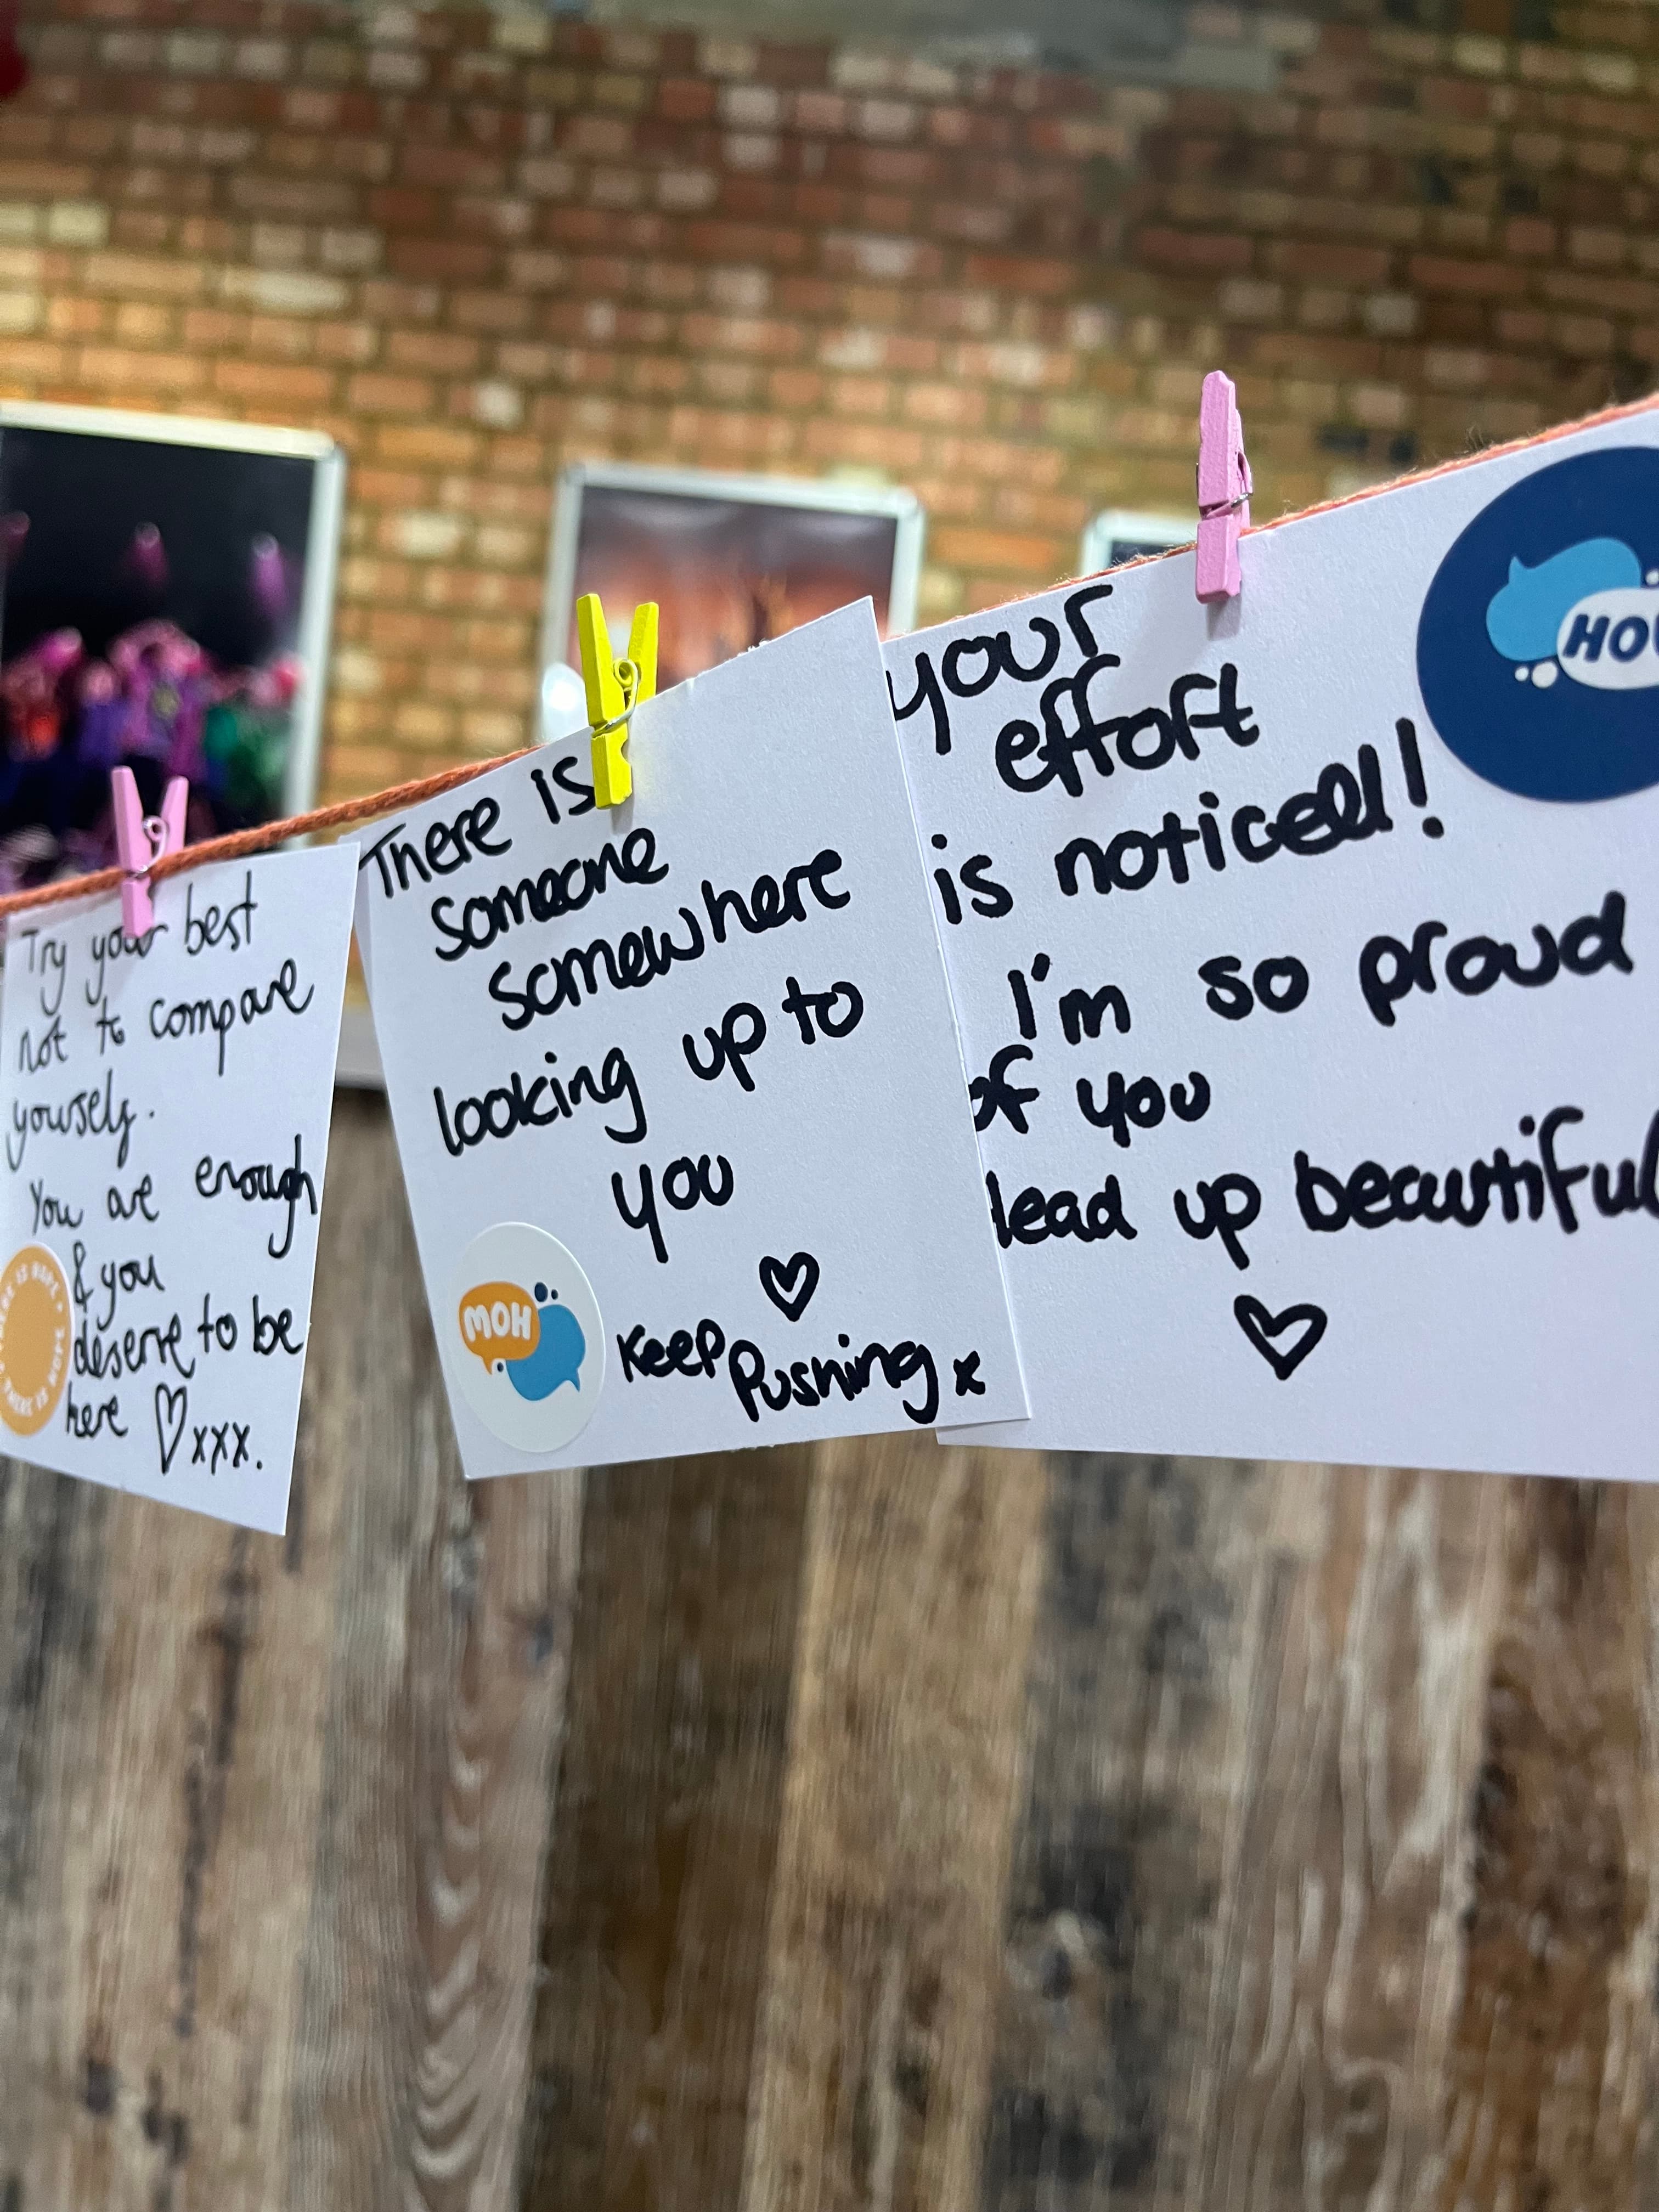 Try your best
not to compare
yourself.
You are enough
& you
deserve to be
here ♡xxx.
THERE IS HOPE
There is
someone
somewhere
looking up to
you
♡
Keep Pushing x
MOH
your
effort
is noticed!
I'm so proud
of you
beautiful
up
♡